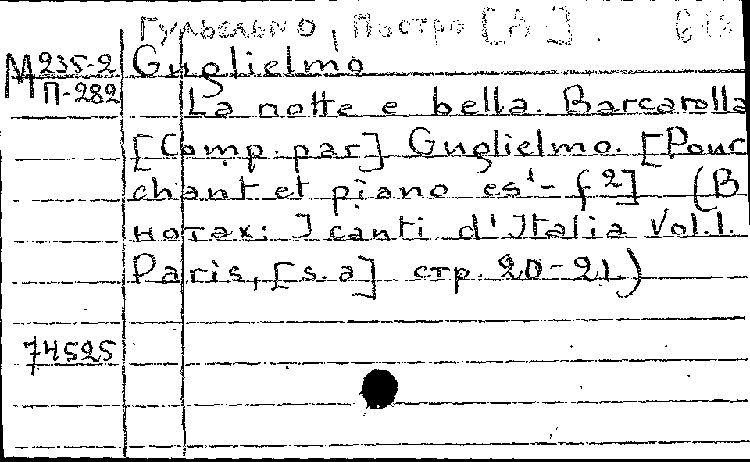 Гульельмо, Постро [А.].
М 235-2 Guglielmo
П-282 La notte e bella. Barcarolla
[Comp. par] Guglielmo. [Pour
chant et piano es'-f²] (В
нотах: I canti d'Italia Vol.1.
Paris, [s.a] стр. 20-21.)
74525